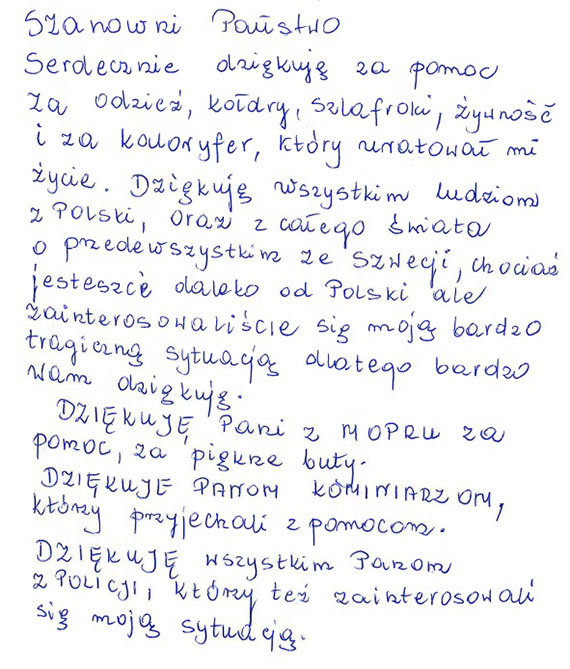 Szanowni Państwo
Serdecznie dziękuję za pomoc
za odzież, kołdry, szlafroki, żywność
i za kaloryfer, który uratował mi
życie. Dziękuję wszystkim ludziom
z Polski, oraz z całego świata
a przedewszystkim ze Szwecji, chociaż
jesteszcie daleko od Polski ale
zainterosowaliście się moją bardzo
tragiczną sytuacją dlatego bardzo
wam dziękuję.
DZIĘKUJĘ Pani z MOPRU za
pomoc, za piękne buty.
DZIĘKUJE PANOM KOMINIARZOM,
którzy przyjechali z pomocom.
DZIĘKUJĘ wszystkim Panom
z POLICJI, którzy też zainterosowali
się moją sytuacją.